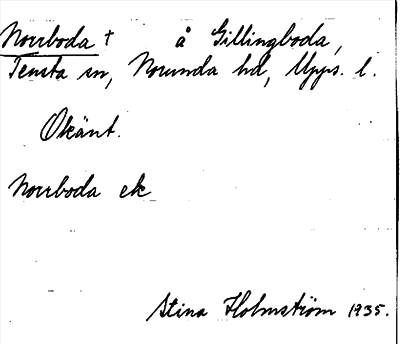 Norrboda † å Gillingboda,
Tensta sn, Norunda hd, Upps. l.
Okänt.
Norrboda ek
Stina Holmström 1935.